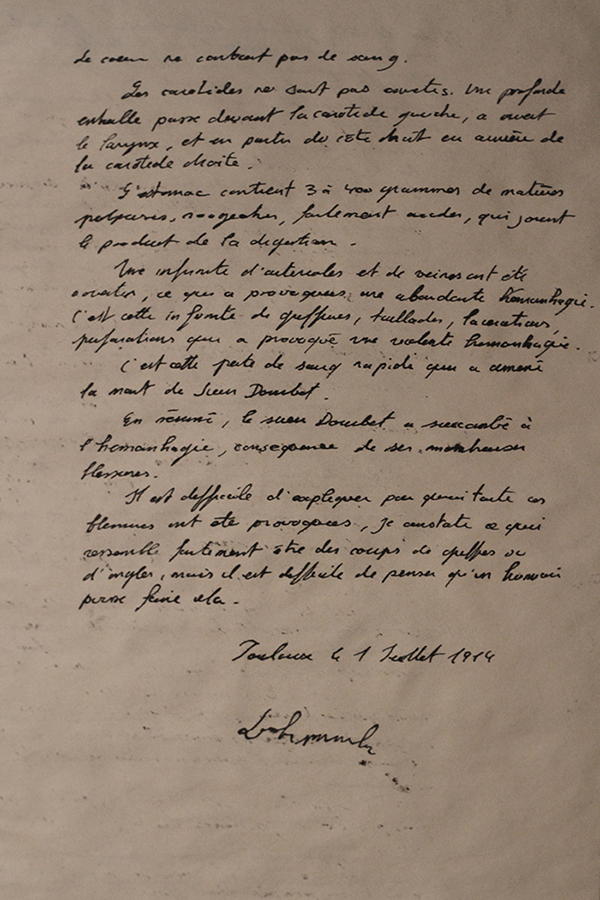 Le coeur ne contient pas de sang.
Les carotides ne sont pas ouvertes. Une profonde
entaille passe devant la carotide gauche, a ouvert
le larynx, et en partie du côté droit en arrière de
la carotide droite.
L'estomac contient 3 à 400 grammes de matières
rougeâtres, fortement acides, qui sont
le produit de la digestion.
Une infinité d'artérioles et de veines ont été
ouvertes, ce qui a provoqué une abondante hémorrhagie.
C'est cette infinité de griffures, taillades, lacérations,
perforations qui a provoqué une violente hémorrhagie.
C'est cette perte de sang rapide qui a amené
la mort de Sieur Doubet.
En résumé, le sieur Doubet a succombé à
l'hémorrhagie, conséquence de ses nombreuses
blessures.
Il est difficile d'expliquer par quoi toutes ces
blessures ont été provoquées, je constate ce qui
ressemble fortement être des coups de griffes ou
d'ongles, mais il est difficile de penser qu'un humain
puisse faire cela.
Toulouse le 1 Juillet 1914